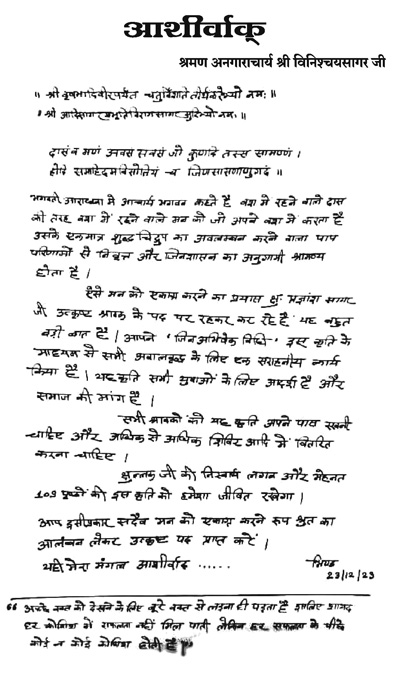 आशीर्वाक्
श्रमण अनगाराचार्य श्री विनिश्चयसागर जी
॥ श्री वृषभादिवीरपर्यंत चतुर्विंशति तीर्थंकरेभ्यो नमः ॥
॥ श्री आदिसागर प्रभृति विरागसागर सूरिभ्यो नमः ॥
दासंव मणं अवसं सवसं जो कुणदि तस्स सामण्णं ।
होदि समाहिदमविसोत्तियं च जिणसासणाणुगदं ॥
भगवती आराधना में आचार्य भगवन कहते हैं वश में रहने वाले दास
की तरह वश में रहने वाले मन को जो अपने वश में करता है
उसके एकमात्र शुद्ध चिद्रूप का अवलम्बन करने वाला पाप
परिणामों से निवृत्त और जिनशासन का अनुगामी श्रामण्य
होता है ।
ऐसे मन को एकाग्र करने का प्रयास क्षु. प्रज्ञांश सागर
जी उत्कृष्ट श्रावक के पद पर रहकर कर रहे हैं यह बहुत
बड़ी बात है । आपने "जिन अभिषेक विधि" इस कृति के
माध्यम से सभी अबालवृद्ध के लिए एक सराहनीय कार्य
किया है । यह कृति सभी युवाओं के लिए आदर्श है और
समाज की मांग है ।
सभी श्रावकों को यह कृति अपने पास रखनी
चाहिए और अधिक से अधिक शिविर आदि में वितरित
करना चाहिए ।
क्षुल्लक जी की निस्वार्थ लगन और मेहनत
109 पृष्ठों की इस कृति को हमेशा जीवित रखेगा ।
आप इसीप्रकार सदैव मन को एकाग्र करने रूप श्रुत का
आलंबन लेकर उत्कृष्ट पद प्राप्त करें ।
यही मेरा मंगल आशीर्वाद ......
भिण्ड
23/12/23
" अच्छे वक्त को देखने के लिए बुरे वक्त से लड़ना ही पड़ता है इसलिए शायद
हर कोशिश में सफलता नहीं मिल पाती लेकिन हर सफलता के पीछे
कोई न कोई कोशिश होती है "